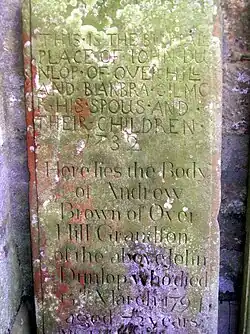 THIS IS THE BURIAL
PLACE OF IOHN DU
NLOP OF OVER HILL
AND BARBRA GILMO
R HIS SPOUS AND
THEIR CHILDREN
1732
Here lies the Body
of Andrew
Brown of Over
Hill Grandson
of the above John
Dunlop who died
March 179
aged years